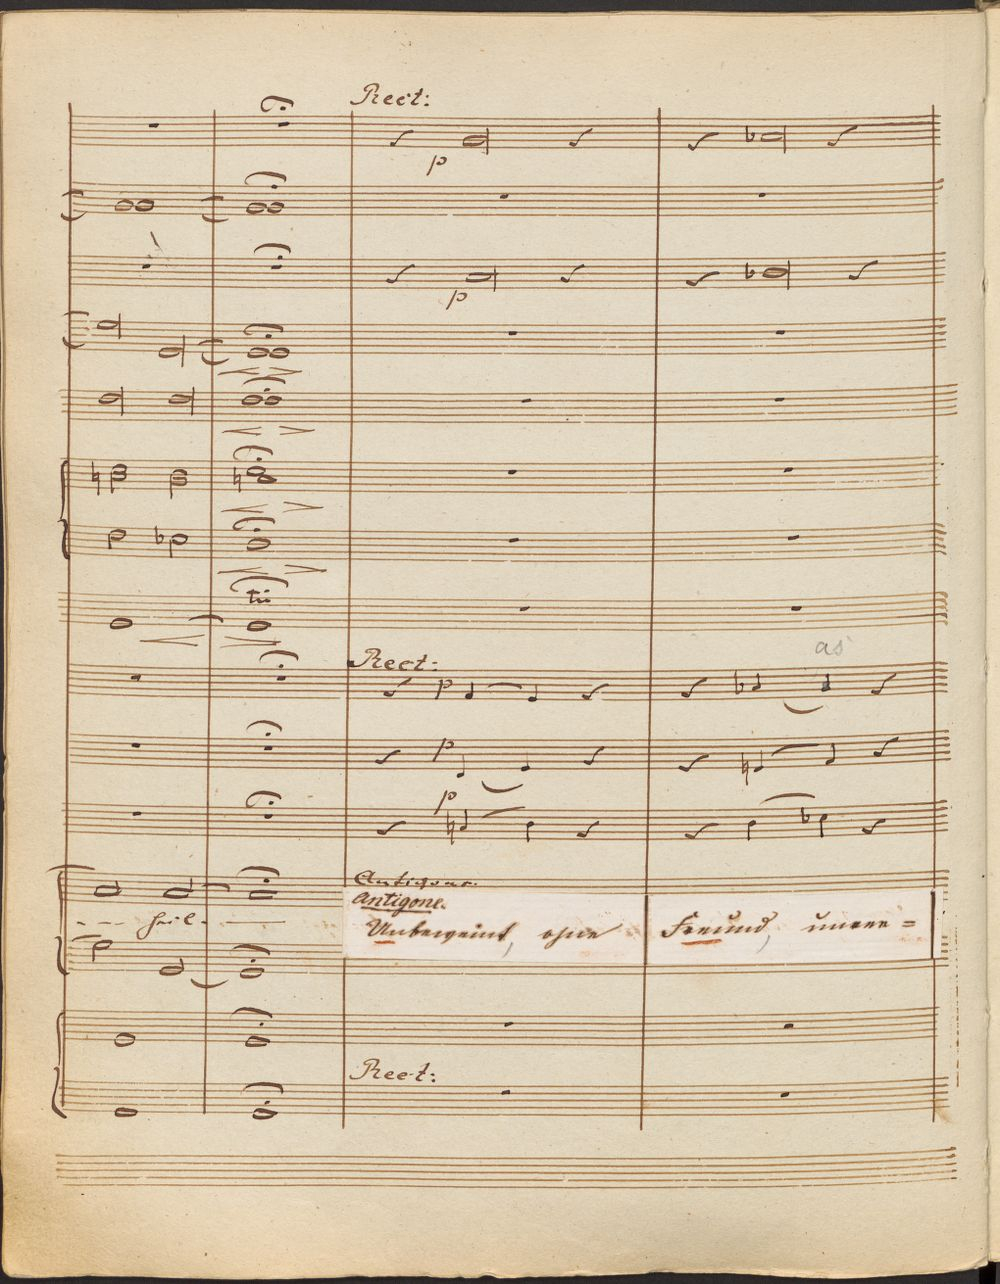 Rect:
p
p
tr
as
Rect:
p
p
p
Antigone.
Antigone.
Unbeweint, ohne Freund, unver=
Rect: